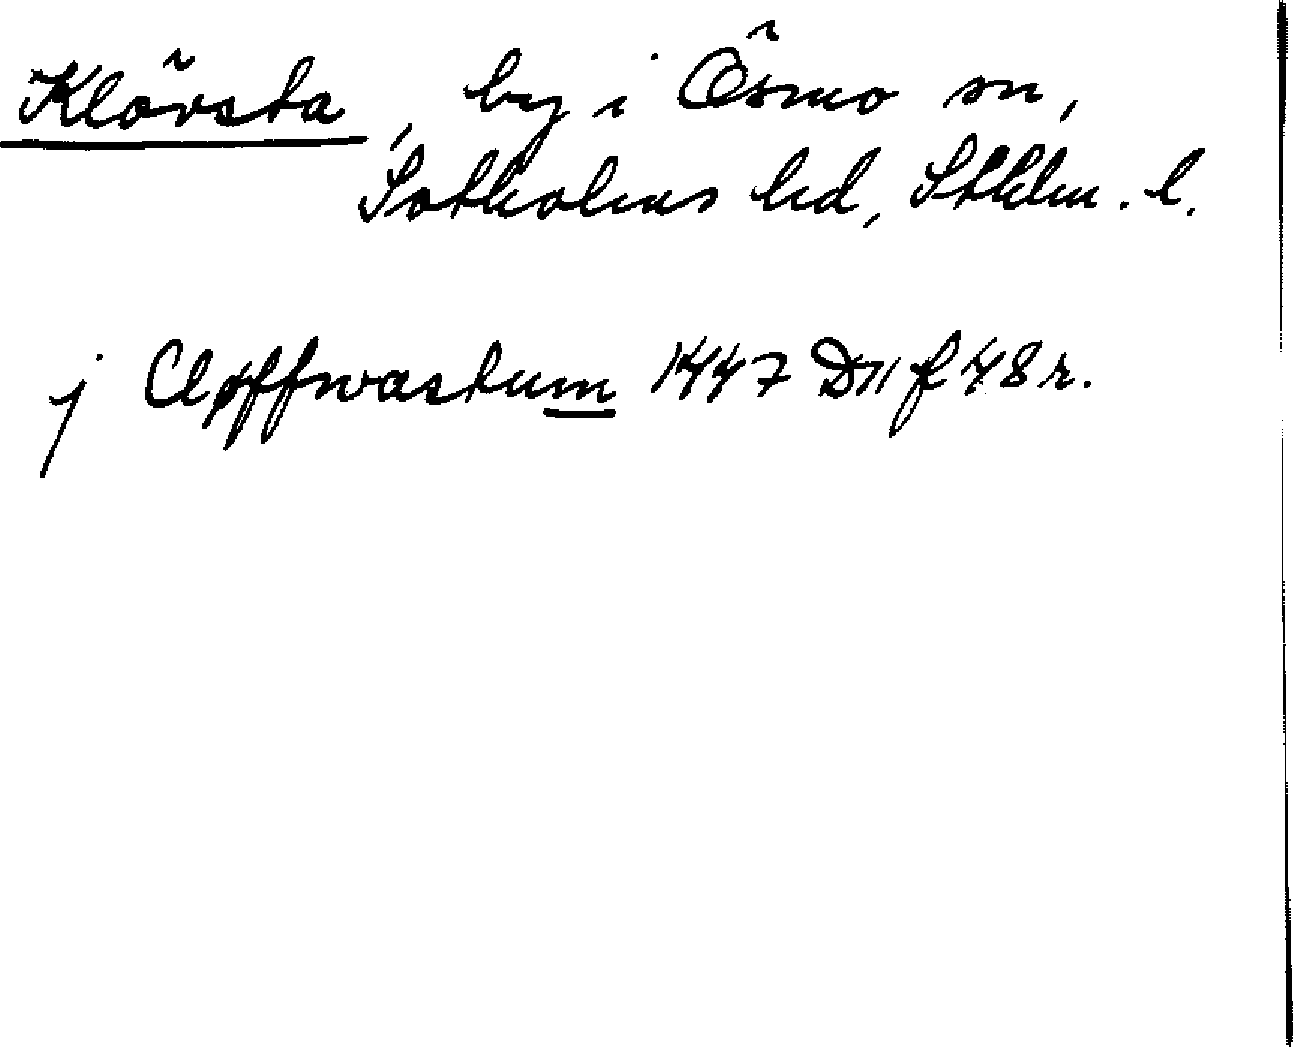 Klövsta, by i Ösmo sn,
Sotholms hd, Sthlm. l.
j Cløffwastum 1447 D11 f 48 r.